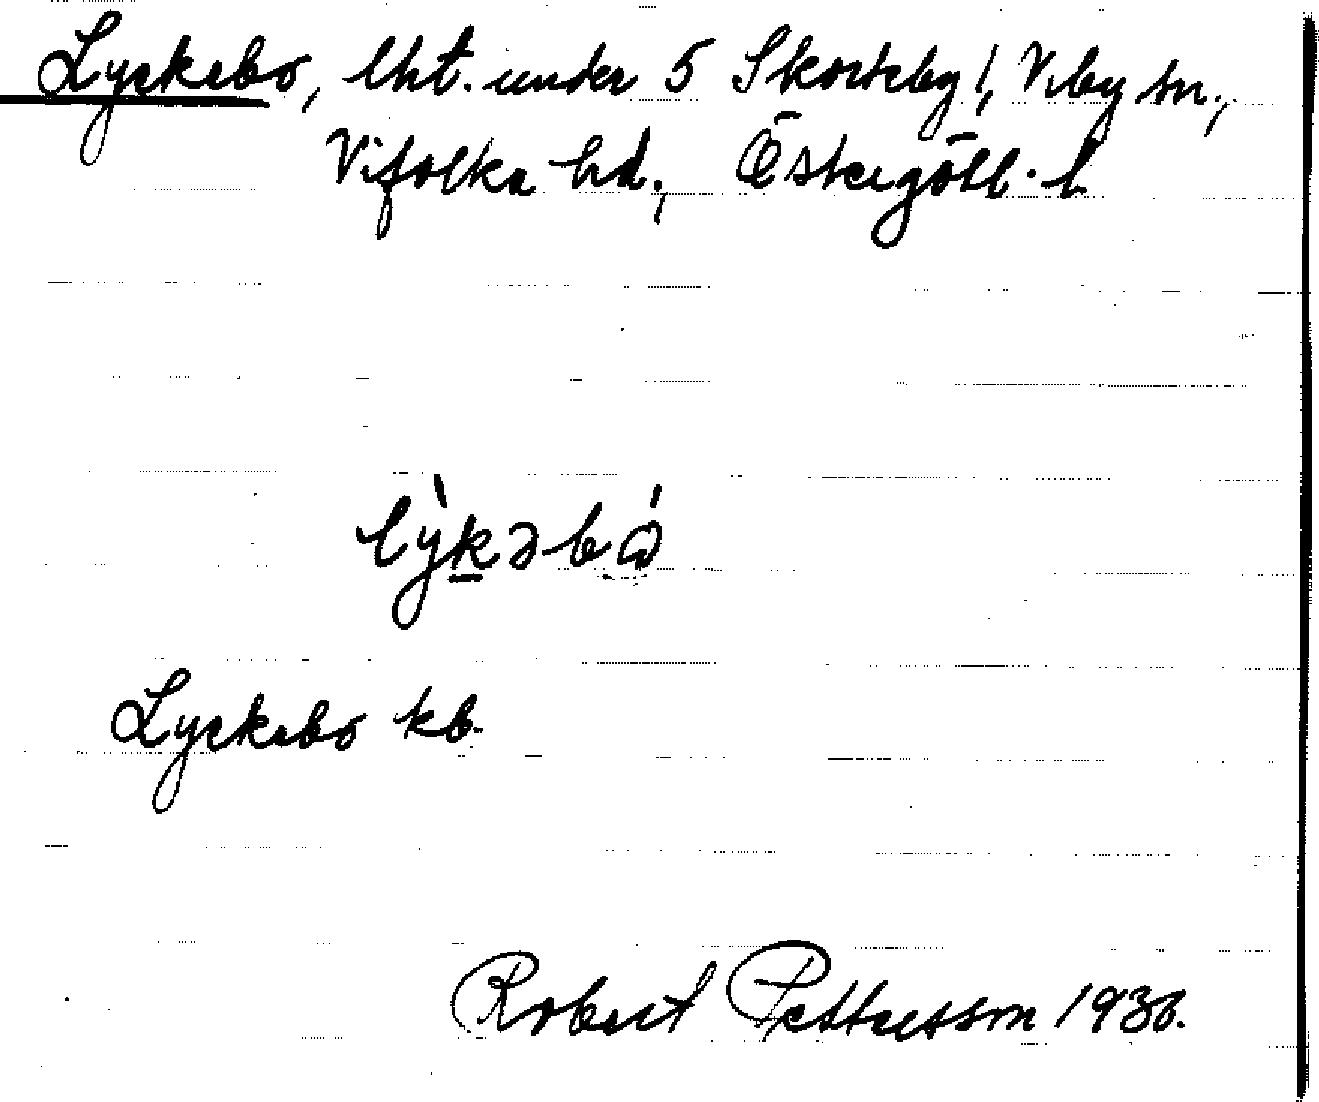 Lyckebo, lht. under 5 Skorteby!, Viby sn.,
Vifolka hd., Östergötl. l.
lỳkəbó
Lyckebo kb.
Robert Pettersson 1936.